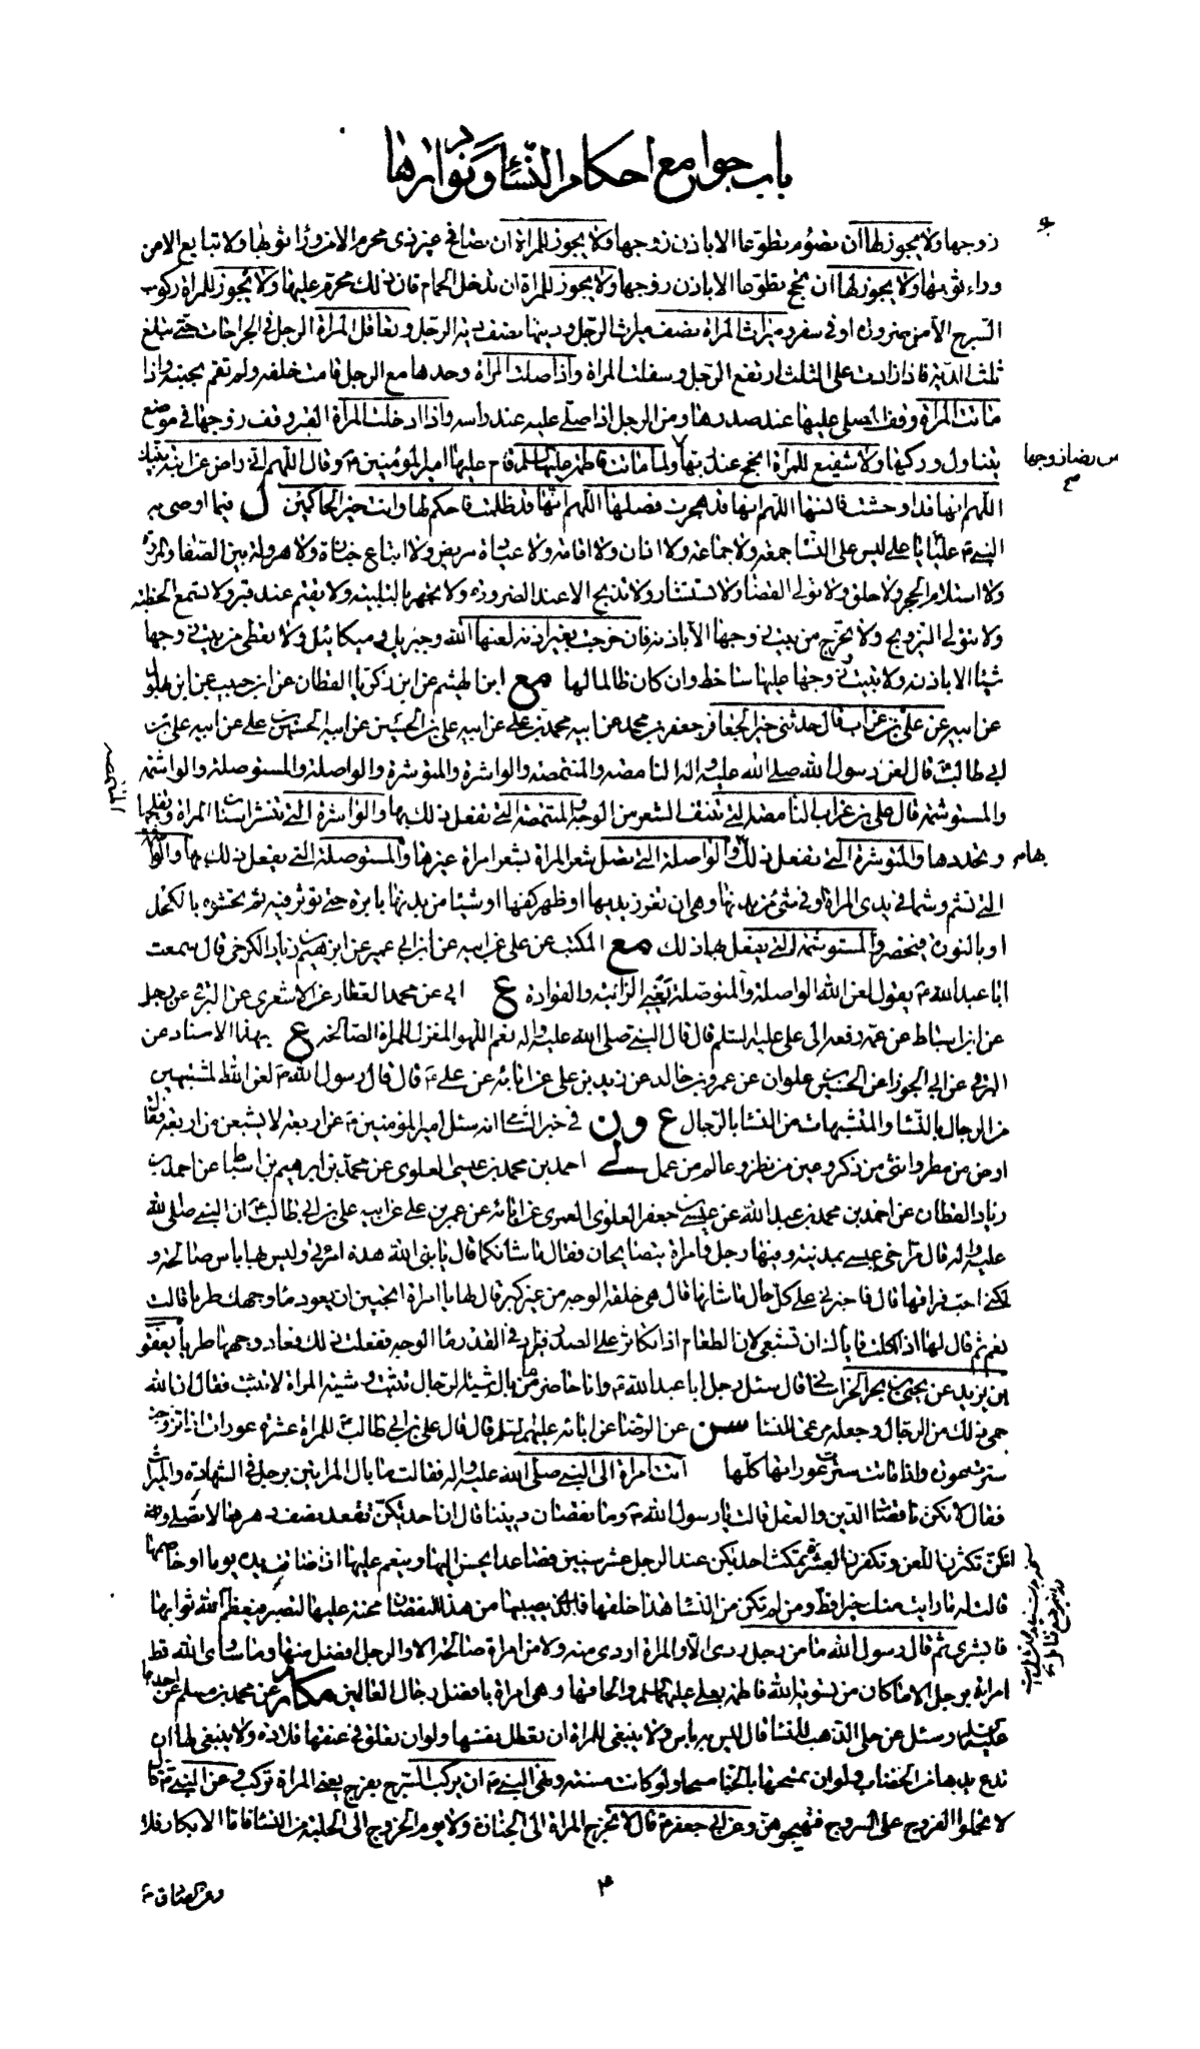 باب جوامع احكام النساء ونوادرها
زوجها ولا يجوز لها ان تصوم تطوعا الا باذن زوجها ولا يجوز للمراة ان تصافح غير ذي محرم الا من وراء ثوبها ولا تبايع الا من
وراء ثوبها ولا يجوز لها ان تحج تطوعا الا باذن زوجها ولا يجوز للمراة ان تدخل الحمام فان ذلك محرم عليها ولا يجوز للمراة ركوب
السرج الا من ضرورة او في سفر وميراث المراة نصف ميراث الرجل وديتها نصف دية الرجل وتعاقل المراة الرجل في الجراحات حتى تبلغ
ثلث الدية فاذا زادت على الثلث ارتفع الرجل وسفلت المراة واذا صلت المراة وحدها مع الرجل قامت خلفه ولم تقم بجنبه واذا
ماتت المراة وقف المصلي عليها عند صدرها ومن الرجل اذا صلى عليه عند راسه واذا ادخلت المراة القبر وقف زوجها في موضع
يتناول وركيها ولا شفيع للمراة انجح عند ربها ولما ماتت فاطمة عليها السلم قام عليها امير المؤمنين ع وقال اللهم اني راض عن ابنة نبيك
س رضا زوجها
اللهم انها قد اوحشت فانسها اللهم انها قد هجرت فصلها اللهم انها قد ظلمت فاحكم لها وانت خير الحاكمين ل فيما اوصى به
النبي ص عليا يا علي ليس على النسا جمعة ولا جماعة ولا اذان ولا اقامة ولا عيادة مريض ولا اتباع جنازة ولا هرولة بين الصفا والمروة
ولا استلام الحجر ولا حلق ولا تولي القضا ولا تستشار ولا تذبح الا عند الضرورة ولا تجهر بالتلبية ولا تقيم عند قبر ولا تسمع الخطبة
ولا تتولى التزويج ولا تخرج من بيت زوجها الا باذنه فان خرجت بغير اذنه لعنها الله وجبريل وميكائيل ولا تعطي من بيت زوجها
شيئا الا باذنه ولا تبيت وزوجها عليها ساخط وان كان ظالما لها مع ابن الهيثم عن ابن زكريا القطان عن ابن حبيب عن ابن بهلول
عن ابيه عن علي بن غراب قال حدثني خير الجعافر جعفر بن محمد عن ابيه محمد بن علي عن ابيه علي بن الحسين عن ابيه الحسين بن علي عن ابيه علي بن
ابي طالب قال لعن رسول الله صلى الله عليه واله النامصة والمنتمصة والواشرة والموتشرة والواصلة والمستوصلة والواشمة
والمستوشمة قال علي بن غراب النامصة التي تنتف الشعر من الوجه والمنتمصة التي تفعل ذلك بها والواشرة التي تنشر اسنان المراة وتفلجها
وتحددها والموتشرة التي تفعل ذلك بها والواصلة التي تصل شعر المراة بشعر امراة غيرها والمستوصلة التي يفعل ذلك بها والواشمة
التي تشم وشما في يدي المراة او في شئ من بدنها وهي ان تغرز يديها او ظهر كفها او شيئا من بدنها بابرة حتى تؤثر فيه ثم تحشوه بالكحل
او بالنورة فيخضر والمستوشمة التي يفعل بها ذلك مع المكتب عن علي عن ابيه عن ابن ابي عمير عن ابراهيم بن زياد الكرخي قال سمعت
ابا عبد الله ع يقول لعن الله الواصلة والمتوصلة يعني الزانية والقوادة ع ابي عن محمد العطار عن الاشعري عن البرقي عن رجل
عن ابن اسباط عن عمه رفعه الى علي عليه السلم قال قال النبي صلى الله عليه واله نعم اللهو المغزل للمراة الصالحة ع بهذا الاسناد عن
البرقي عن ابي الجوزا عن الحسين بن علوان عن عمرو بن خالد عن زيد بن علي عن ابائه عن علي ع قال قال رسول الله ص لعن الله المتشبهين
من الرجال بالنسا والمتشبهات من النسا بالرجال ع و ن في خبر الشامي انه سئل امير المؤمنين ع عن اربعة لا يشبعن من اربعة فقال
ارض من مطر وانثى من ذكر وعين من نظر وعالم من علم لي احمد بن محمد بن عيسى العلوي عن محمد بن ابرهيم بن اسباط عن احمد بن
زياد القطان عن احمد بن محمد بن عبد الله عن عيسى بن جعفر العلوي العمري عن ابائه عن عمر بن علي عن ابيه علي بن ابي طالب ان النبي صلى الله
عليه واله قال مر اخي عيسى بمدينة وفيها رجل وامراة يتصايحان فقال ما شانكما قال يا نبي الله هذه امراتي وليس بها باس صالحة و
لكني احب فراقها قال فاخبرني على كل حال ما شانها قال هي خلقة الوجه من غير كبر قال لها يا امراة اتحبين ان يعود ماء وجهك طريا قالت
نعم ثم قال لها اذا اكلت فاياك ان تشبعي لان الطعام اذا تكاثر على الصدر فزاد في القدر ذهب ماء الوجه ففعلت ذلك فعاد وجهها طريا يعقوب
ابن يزيد عن يحيى بن بحر الحراني قال سئل رجل ابا عبد الله ع وانا حاضر ما بال شيئة الرجال تنبت وشيئة المراة لا تنبت فقال ان الله
حمى ذلك من الرجال وجعله مرعى للنسا سن عن الرضا عن ابائه عليهم السلم قال قال علي بن ابي طالب ع للمراة عشرة عورات اذا تزوجت
سترت عورة واذا ماتت سترت عوراتها كلها اتت امراة الى النبي صلى الله عليه واله فقالت ما بال المراتين برجل في الشهادة والميراث
فقال لانكن ناقصات الدين والعقل قالت يا رسول الله ص وما نقصان ديننا قال ان احديكن تقعد نصف دهرها لا تصلي
انكن تكثرن اللعن وتكفرن العشرة تمكث احديكن عند الرجل عشر سنين فصاعدا يحسن اليها وينعم عليها اذا ضاقت يده يوما او خاصمها
قالت له ما رايت منك خيرا قط ومن لم تكن من النسا هذا خلقها فالذي يصيبها من هذا النقصان محنة عليها لتصبر فيعظم الله ثوابها
فابشري ثم قال رسول الله ما من رجل ردي الا والمراة اردى منه ولا من امراة صالحة الا والرجل افضل منها وما ساوى الله قط
امراة برجل الا ما كان من تسوية الله فاطمة بعلي عليهما السلم والحاقها وهي امراة بافضل رجال العالمين مكا عن محمد بن مسلم عن احدهما
عليه السلم وسئل عن حلي الذهب للنسا قال ليس به باس ولا ينبغي للمراة ان تعطل نفسها ولو ان تعلق في عنقها قلادة ولا ينبغي لها ان
تدع يدها من الخضاب ولو ان تمسحها بالحنا مسحا ولو كانت مسنة ونهى النبي ص ان يركب السرج بفرج يعني المراة تركب وعن النبي ص قال
لا تحملوا الفروج على السروج فتهيجوهن وعن ابي جعفر ع قال لا تخرج المراة الى الجنازة ولا يوم الخروج الى الحلبة من النسا فاما الابكار فلا
٣
وعن الصادق ع